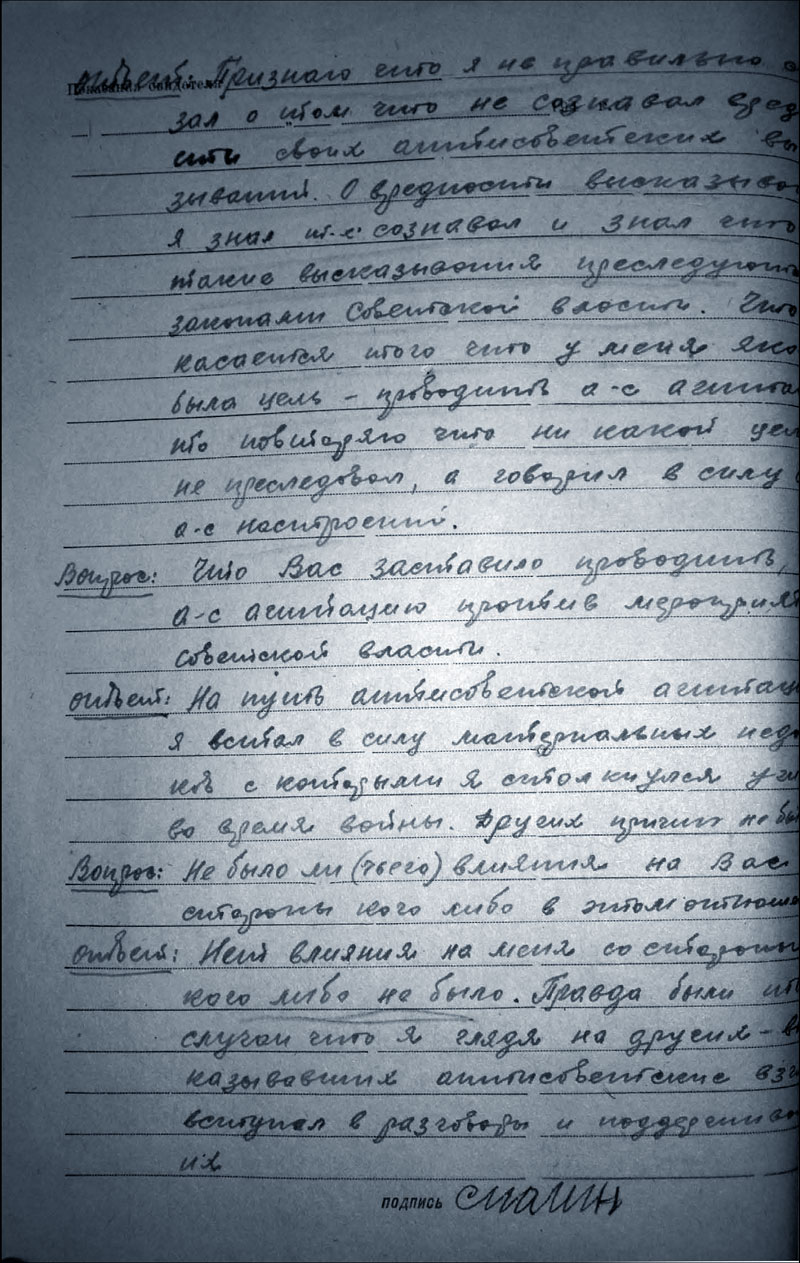 Показания свидетеля
Ответ: Признаю что я не правильно
зал о том что не сознавал вред
сти своих антисоветских вы
зываний. О вредности высказыва
я знал т.к. сознавал и знал что
такие высказывания преследуют
законами Советской власти. Что
касается того что у меня яко
была цель – проводить а-с агита
то повторяю что ни какой цел
не преследовал, а говорил в силу
а-с настроений.
Вопрос: Что Вас заставило проводить,
а-с агитацию против мероприят
советской власти.
Ответ: На путь антисоветской агитаци
я встал в силу материальных недо
ков с которыми я столкнулся
во время войны. Других причин не бы
Вопрос: Не было ли (чьего) влияния на Вас
стороны кого либо в этом отноше
Ответ: Нет влияния на меня со стороны
кого либо не было. Правда были
случаи что я глядя на других – в
казывавших антисоветские взг
вступал в разговоры и поддержива
их
подпись